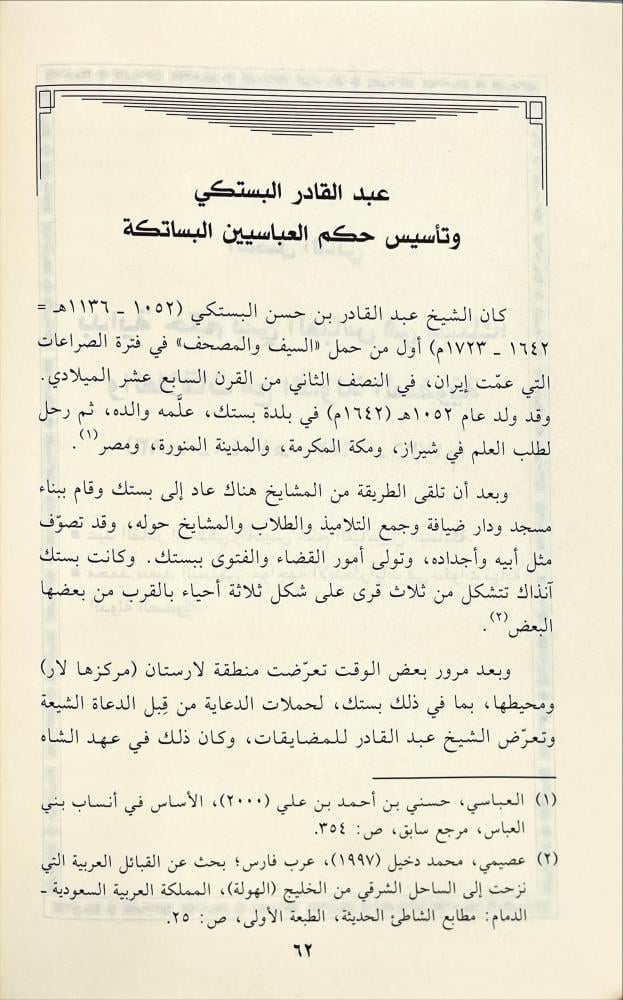 عبد القادر البستكي
وتأسيس حكم العباسيين البساتكة
كان الشيخ عبد القادر بن حسن البستكي (١٠٥٢ ـ ١١٣٦هـ =
١٦٤٢ ـ ١٧٢٣م) أول من حمل «السيف والمصحف» في فترة الصراعات
التي عمّت إيران، في النصف الثاني من القرن السابع عشر الميلادي.
وقد ولد عام ١٠٥٢هـ (١٦٤٢م) في بلدة بستك، علَّمه والده، ثم رحل
لطلب العلم في شيراز، ومكة المكرمة، والمدينة المنورة، ومصر(١).
وبعد أن تلقى الطريقة من المشايخ هناك عاد إلى بستك وقام ببناء
مسجد ودار ضيافة وجمع التلاميذ والطلاب والمشايخ حوله، وقد تصوّف
مثل أبيه وأجداده، وتولى أمور القضاء والفتوى ببستك. وكانت بستك
آنذاك تتشكل من ثلاث قرى على شكل ثلاثة أحياء بالقرب من بعضها
البعض(٢).
وبعد مرور بعض الوقت تعرّضت منطقة لارستان (مركزها لار)
ومحيطها، بما في ذلك بستك، لحملات الدعاية من قِبل الدعاة الشيعة
وتعرّض الشيخ عبد القادر للمضايقات، وكان ذلك في عهد الشاه
(١) العباسي، حسني بن أحمد بن علي (٢٠٠٠)، الأساس في أنساب بني
العباس، مرجع سابق، ص: ٣٥٤.
(٢) عصيمي، محمد دخيل (١٩٩٧)، عرب فارس؛ بحث عن القبائل العربية التي
نزحت إلى الساحل الشرقي من الخليج (الهولة)، المملكة العربية السعودية ـ
الدمام: مطابع الشاطئ الحديثة، الطبعة الأولى، ص: ٢٥.
٦٢